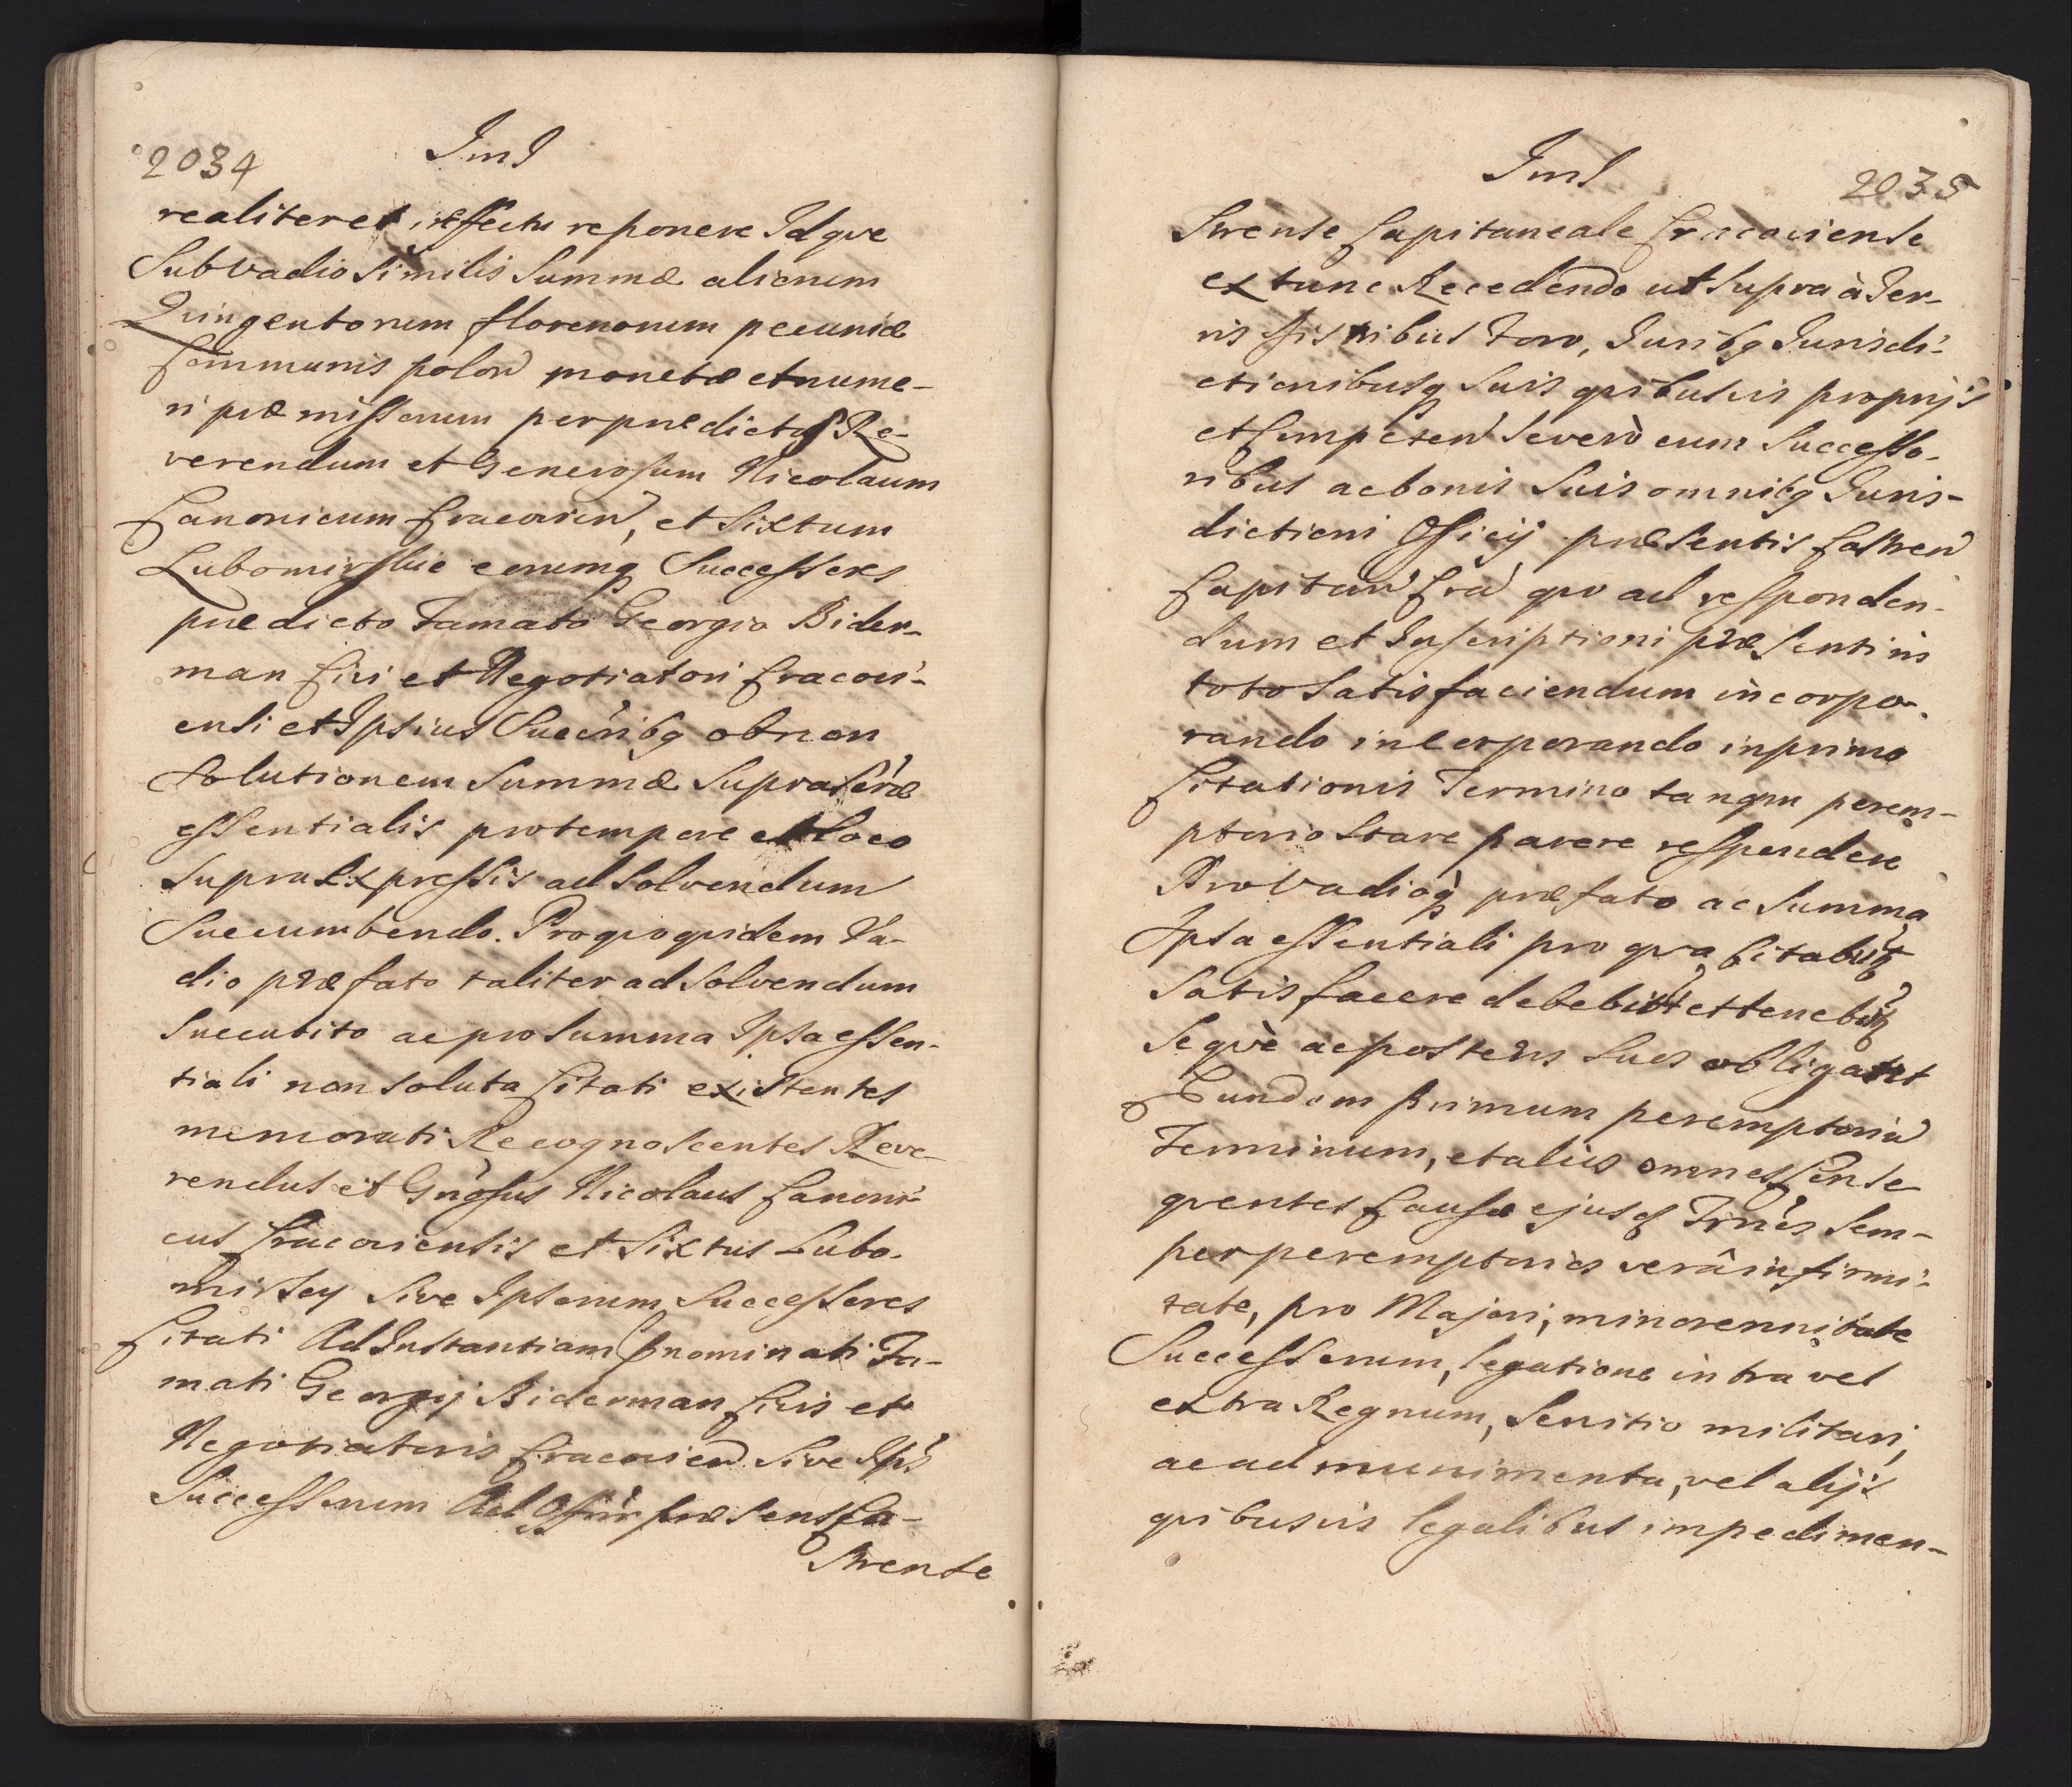 2034
realiter et in effectu reponere Idqve
Sub Vadio Similis Summæ alicnum
Qvingentorum florenorum pecuniæ
Communis polon monetæ et nume-
ri præmissorum per prædictos Re-
verendum et Generosum Nicolaum
Canonicum Cracovien, et Sixtum
Lubomirskie eorumq Successores
prædicto Famato Georgio Bider-
man Civi et Negotiatori Cracovi-
ensi et Ipsius Succribq ob non
Solutionem Summæ Suprascræ
essentialis pro tempore et loco
Supra Expressis ad Solvendum
Succumbendo. Pro qvo qvidem Va-
dio præfato taliter ad Solvendum
Succubito ac pro Summa Ipsa essen-
tiali non Soluta Citati existentes
memorati Recognoscentes Reve-
rendus et Gnosus Nicolaus Canoni-
cus Cracoviensis et Sixtus Lubo-
mirscy Sive Ipsorum Successores
Citati Ad Instantiam prænominati Fa-
mati Georgij Biderman Civis et
Negotiatoris Cracovien Sive Ips
Successorum Ad Offm præsens Ca-
Strense
2035
Strense Capitaneale Cracoviense
ex tunc Recedendo ut Supra à Ter-
ris Distribus Foro, Juribq Jurisdi-
ctionibusq Suis qvibusvis proprijs
et Competen Severò cum Successo-
ribus ac bonis Suis omnibq Juris-
dictioni Officij præsentis Castren
Capitan Cra qvo ad responden-
dum et Inscriptioni præsenti in
toto Satisfaciendum incorpo-
rando incorporando in primo
Citationis Termino tanqm perem-
ptorio Stare parere respondere
Pro Vadioq præfato ac Summa
Ipsa essentiali pro qva Citabunt
Satisfacere debebunt et tenebunt
Seqvè ac posteros Suos obligarunt
Eundem primum peremptoriu
Terminum, et alios omnes Conse
qventes Causæ ejusd Trnos Sem-
per peremptorios verâ infirmi-
tate, pro Majori, minorennitate
Successorum, legatione intra vel
extra Regnum, Servitio militari,
ac ad munimenta, vel alijs
qvibusvis legalibus impedimen-